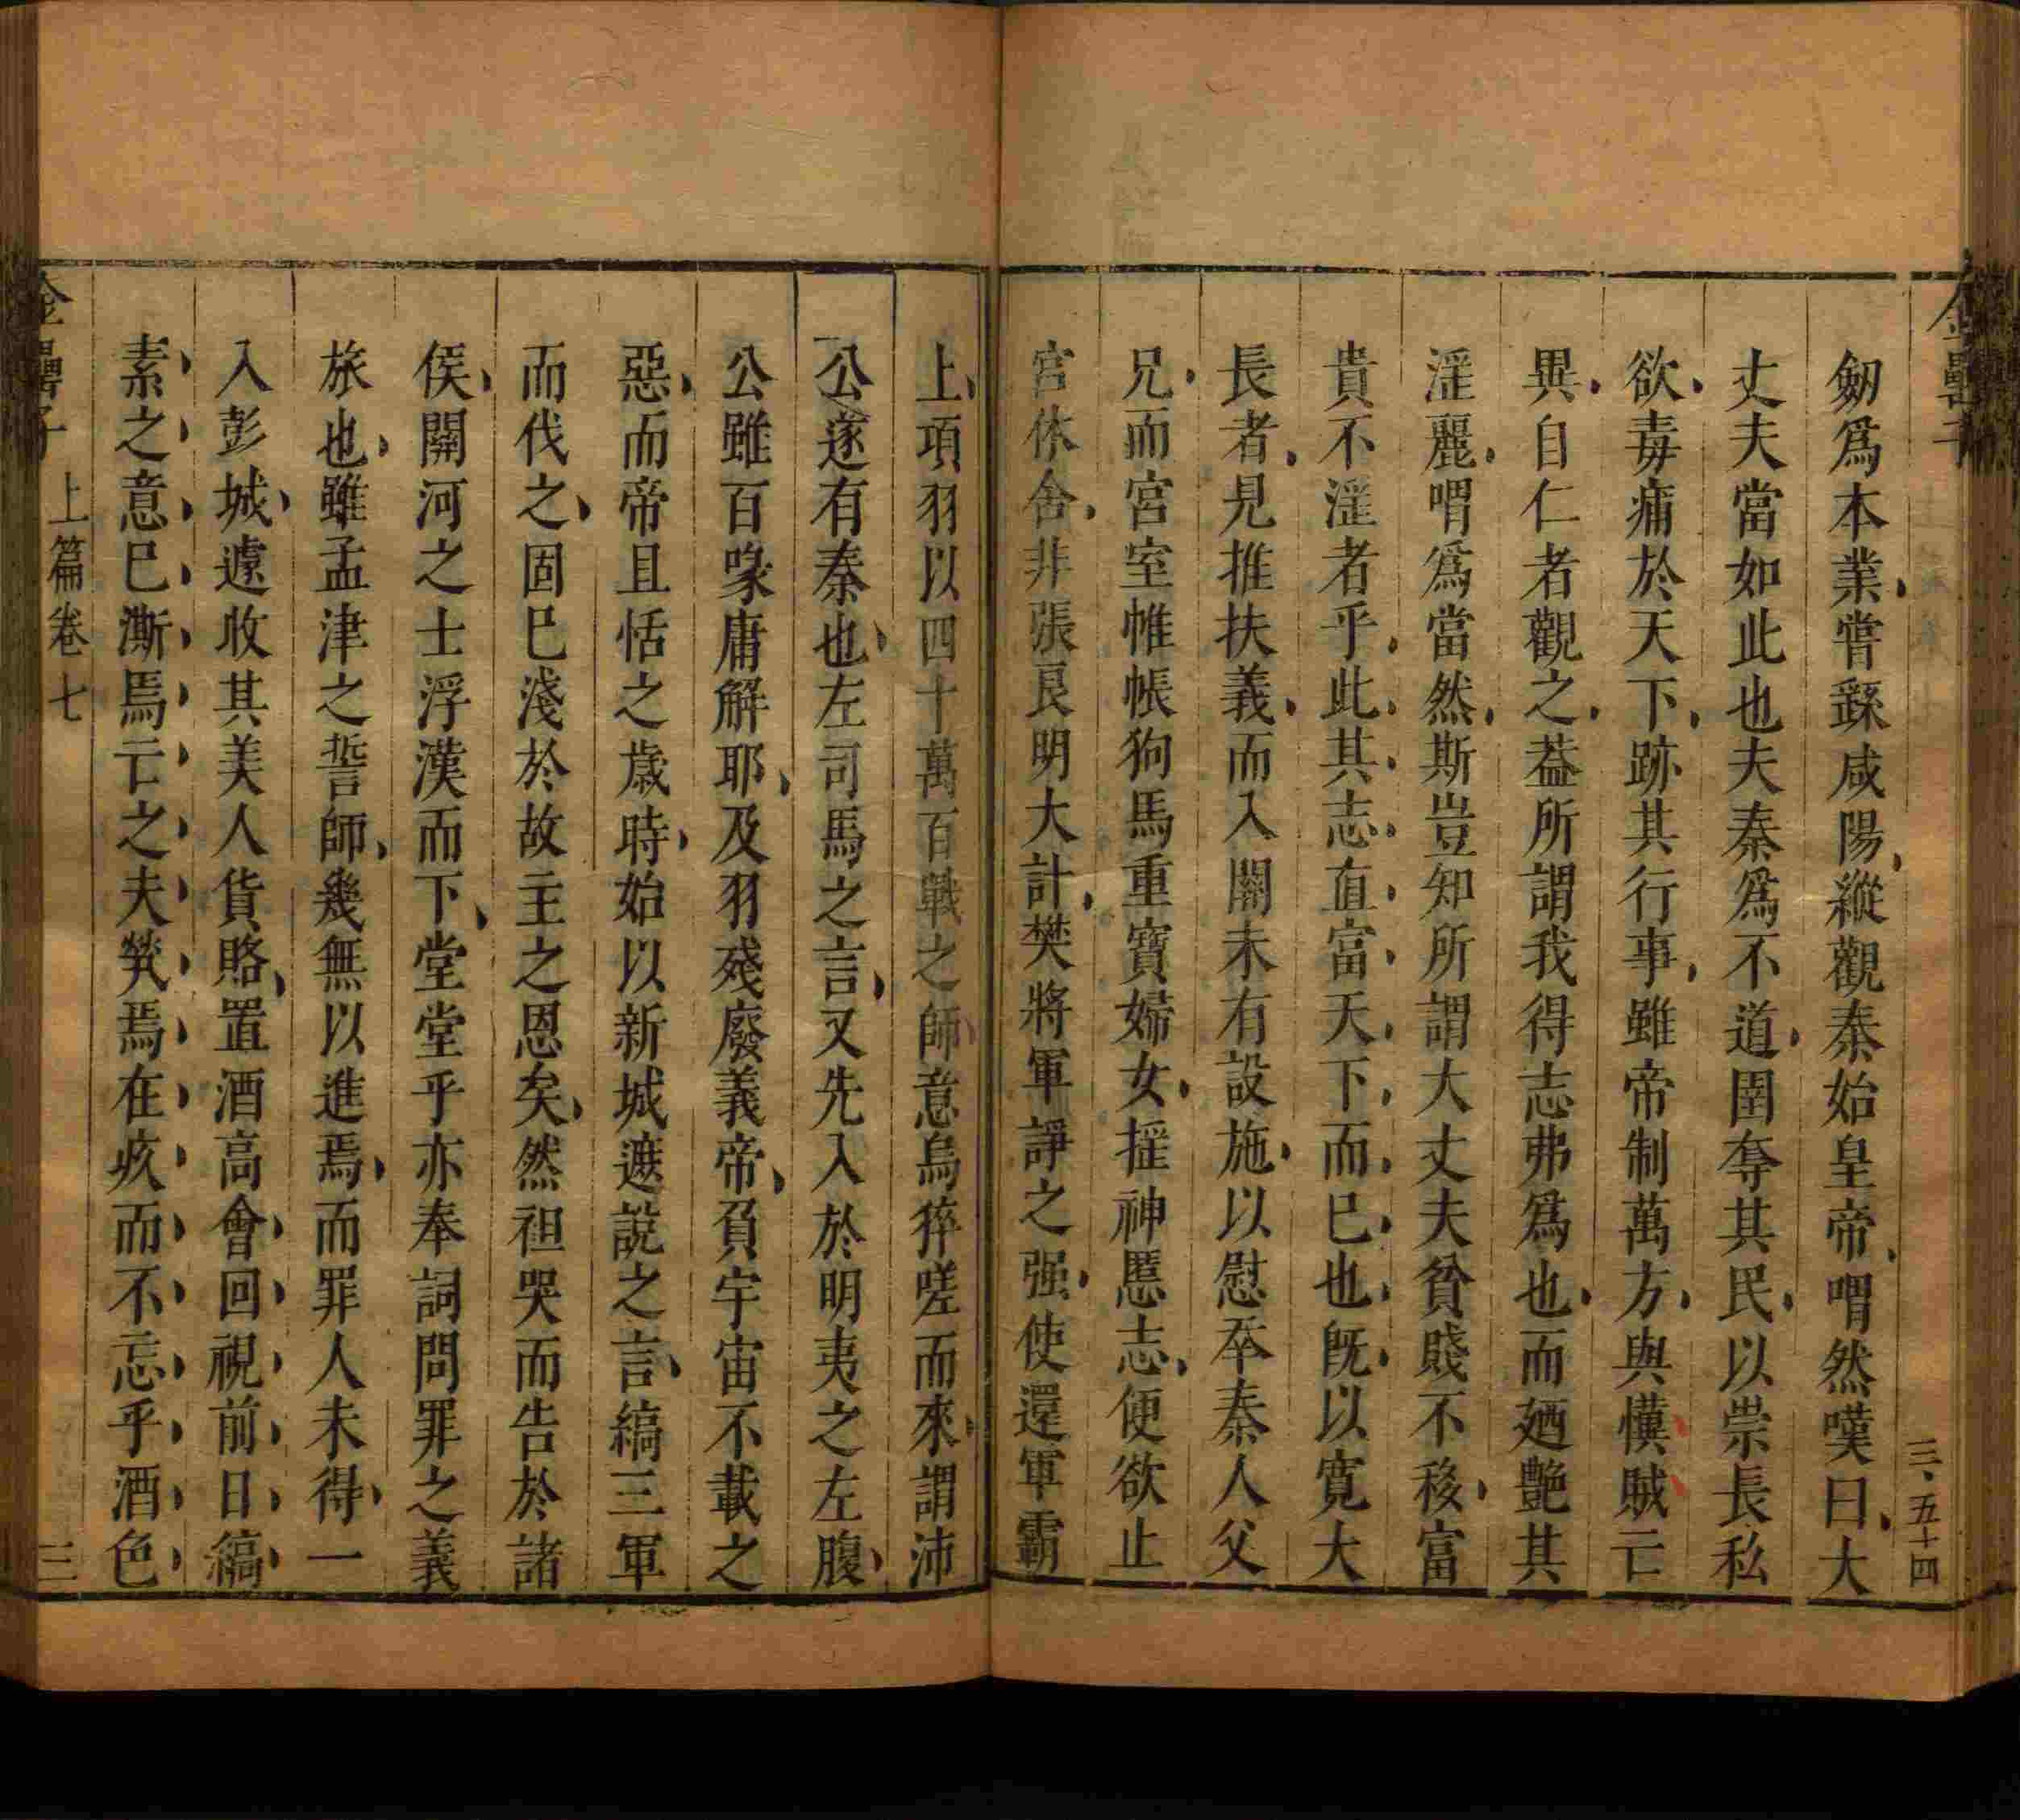 三五十四
劒爲本業嘗繇咸陽縱觀秦始皇帝喟然嘆曰大
丈夫當如此也夫秦爲不道圉奪其民以崇長私
欲毒痡於天下跡其行事雖帝制萬方與橫賊亡
異自仁者觀之葢所謂我得志弗爲也而廼艶其
滛麗喟爲當然斯豈知所謂大丈夫貧賤不移富
貴不滛者乎此其志直富天下而巳也旣以寬大
長者見推扶義而入關未有設施以慰卒秦人父
兄而宮室帷帳狗馬重寶婦女摇神慝志便欲止
宮休舍非張良明大計樊將軍諍之强使還軍霸
上項羽以四十萬百戰之師意烏猝嗟而來謂沛
公遂有秦也左司馬之言又先入於明夷之左腹
公雖百喙庸解耶及羽殘廢義帝負宇宙不載之
惡而帝且恬之歲時始以新城遮說之言縞三軍
而伐之固巳淺於故主之恩矣然袒哭而告於諸
侯關河之士浮漢而下堂堂乎亦奉詞問罪之義
旅也雖孟津之誓師幾無以進焉而罪人未得一
入彭城遽收其美人貨賂置酒高會回視前日縞
素之意巳澌焉亡之夫煢焉在疚而不忘乎酒色
金罍子 上篇卷七 三